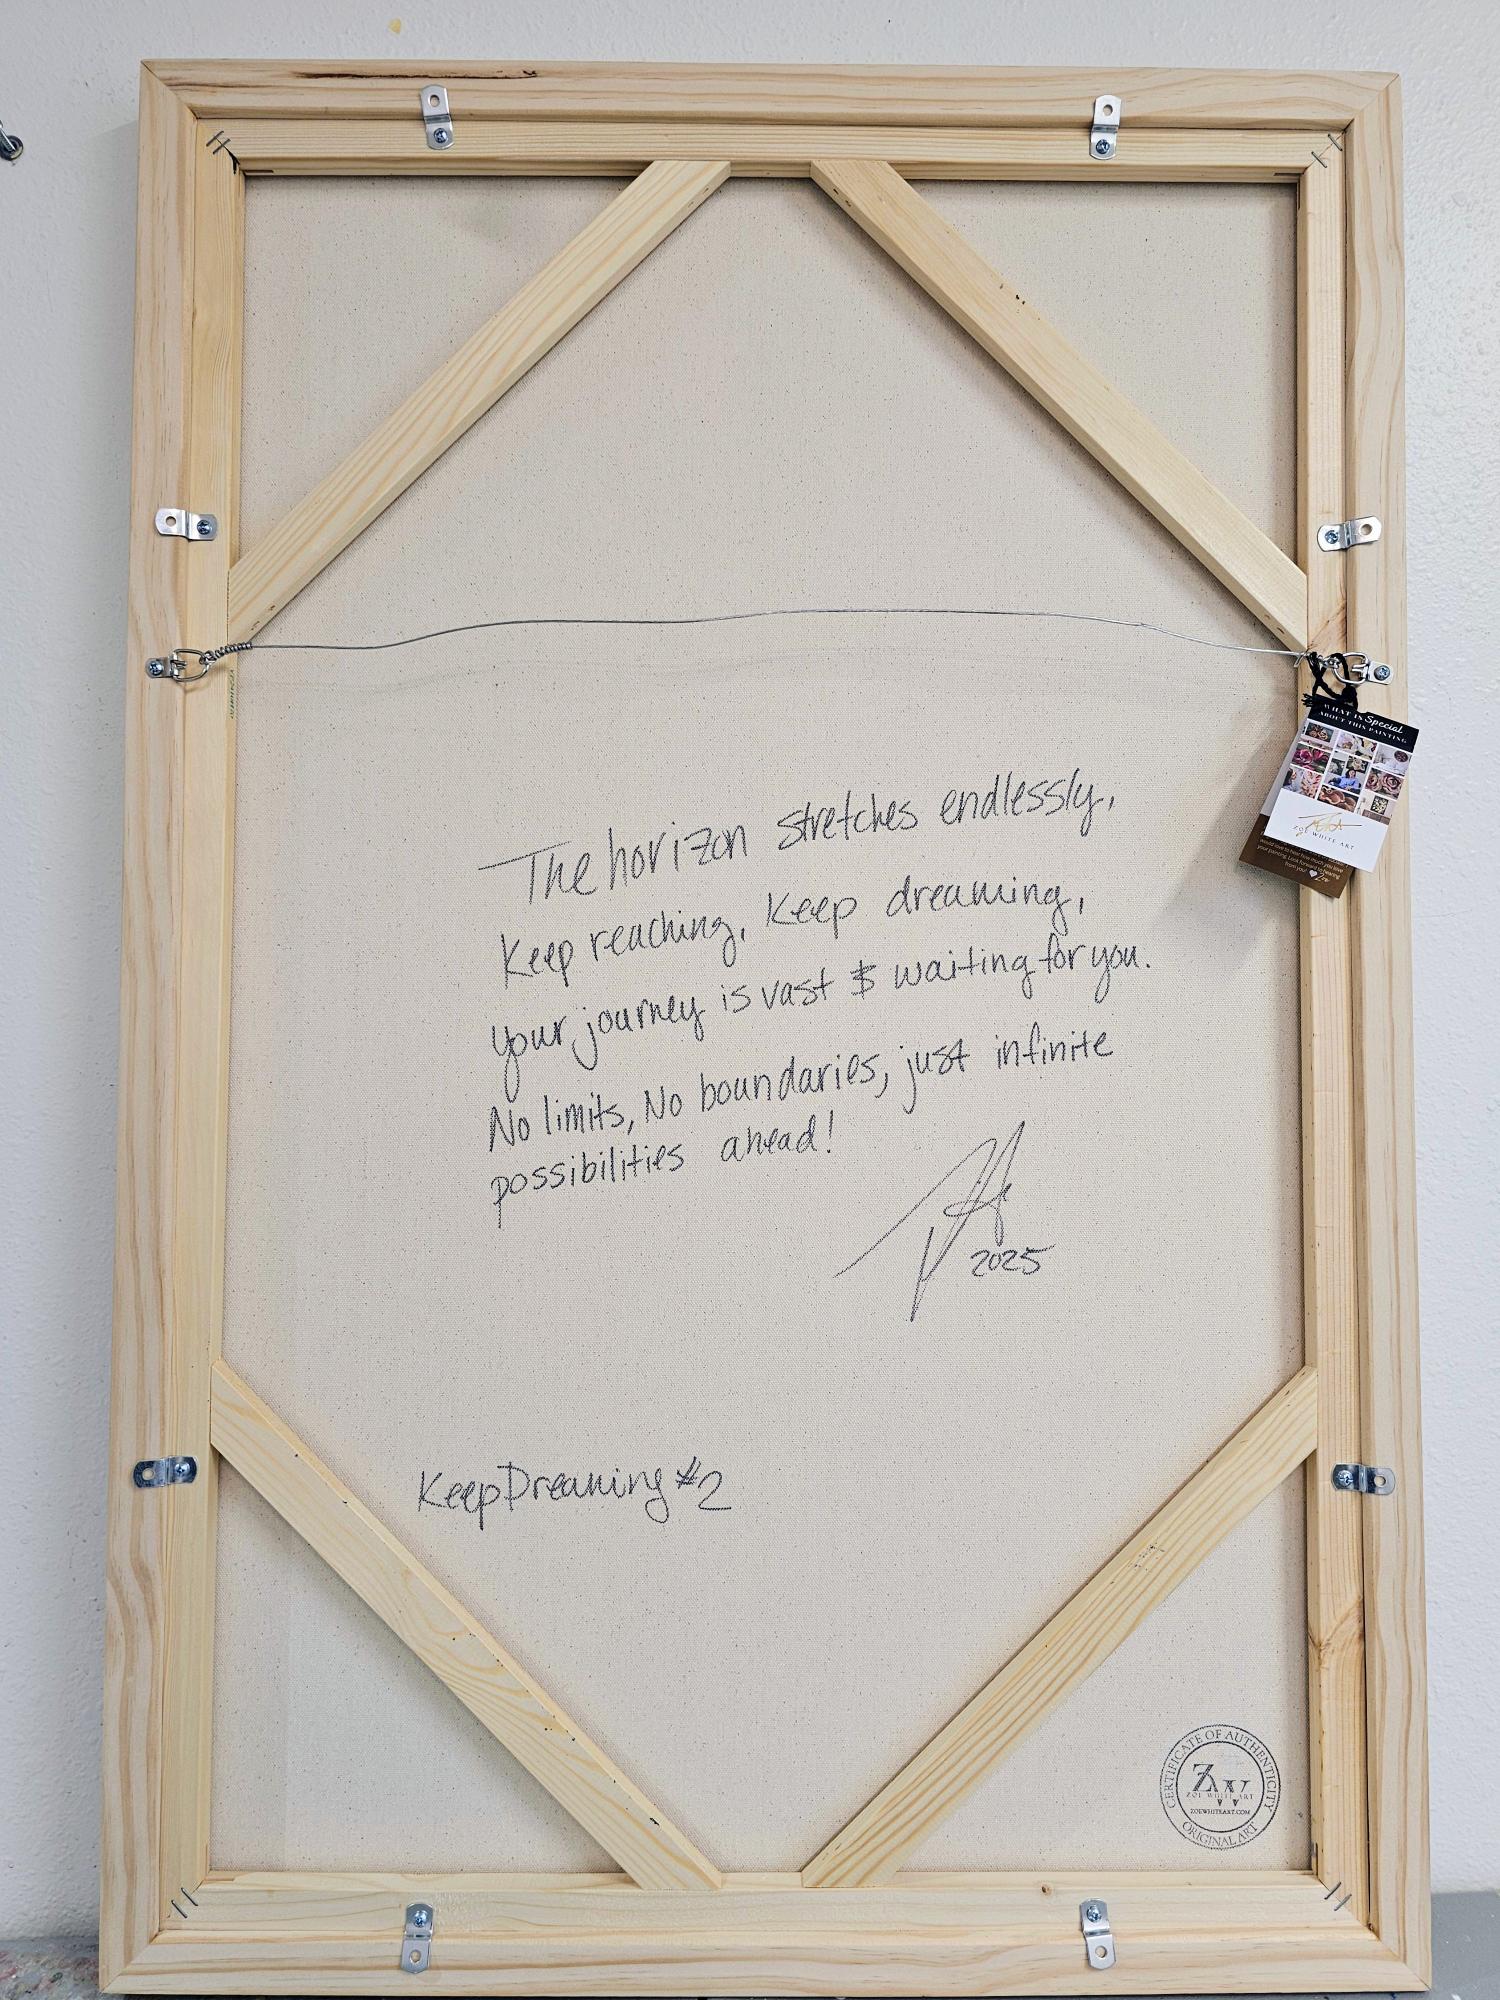 The horizon stretches endlessly,
Keep reaching, Keep dreaming,
your journey is vast & waiting for you.
No limits, No boundaries, just infinite
possibilities ahead!
2025
Keep Dreaming #2
WHAT IS Special
ABOUT THIS PAINTING
ZOE WHITE ART
would love to hear how much you love
your painting. Look forward to hearing
from you! ♥ Zoe
CERTIFICATE OF AUTHENTICITY
ZW
ZOE WHITE ART
ZOEWHITEART.COM
ORIGINAL ART